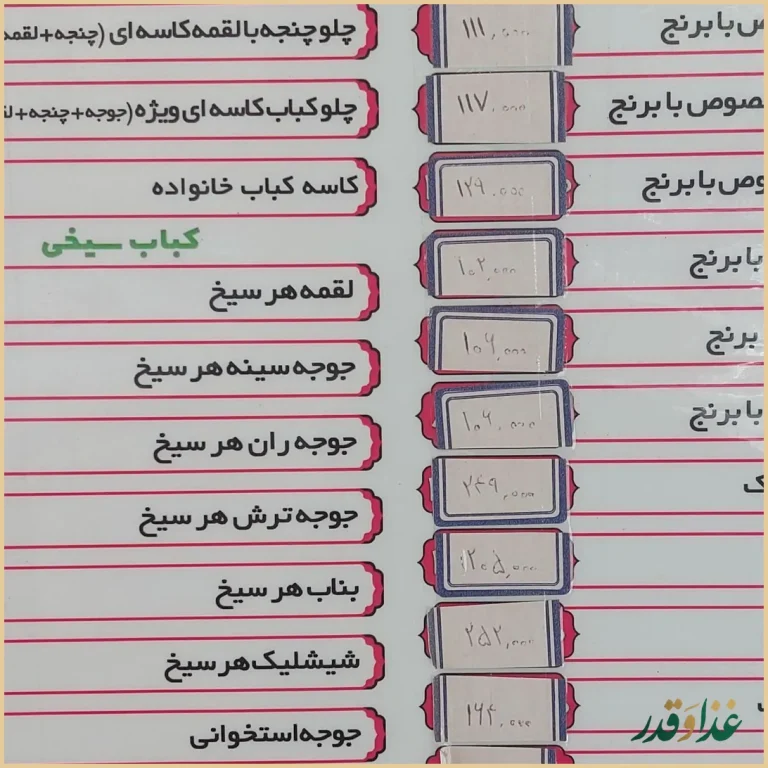 ص با برنج
۱۱۱,۰۰۰
چلو چنجه با لقمه کاسه ای (چنجه+لقمه
صوص با برنج
۱۱۷,۰۰۰
چلو کباب کاسه ای ویژه (جوجه+چنجه+لق
وص با برنج
۱۲۹,۰۰۰
کاسه کباب خانواده
با برنج
۱۰۲,۰۰۰
کباب سیخی
لقمه هر سیخ
برنج
۱۰۶,۰۰۰
جوجه سینه هر سیخ
با برنج
۱۰۶,۰۰۰
جوجه ران هر سیخ
ک
۲۴۹,۰۰۰
جوجه ترش هر سیخ
۲۰۵,۰۰۰
بناب هر سیخ
۲۵۲,۰۰۰
شیشلیک هر سیخ
۱۶۴,۰۰۰
جوجه استخوانی
غذا و قدر